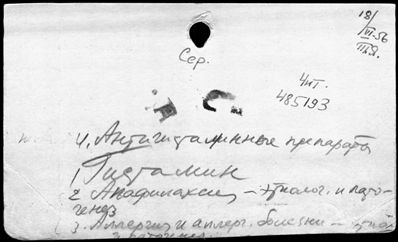 18/
VI-56
Сер.
Чит.
485193
4. Антигистаминные препараты
1 Гистамин
2 Анафилаксия – этиолог. и пато-
генез
3. Аллергия и аллерг. болезни –